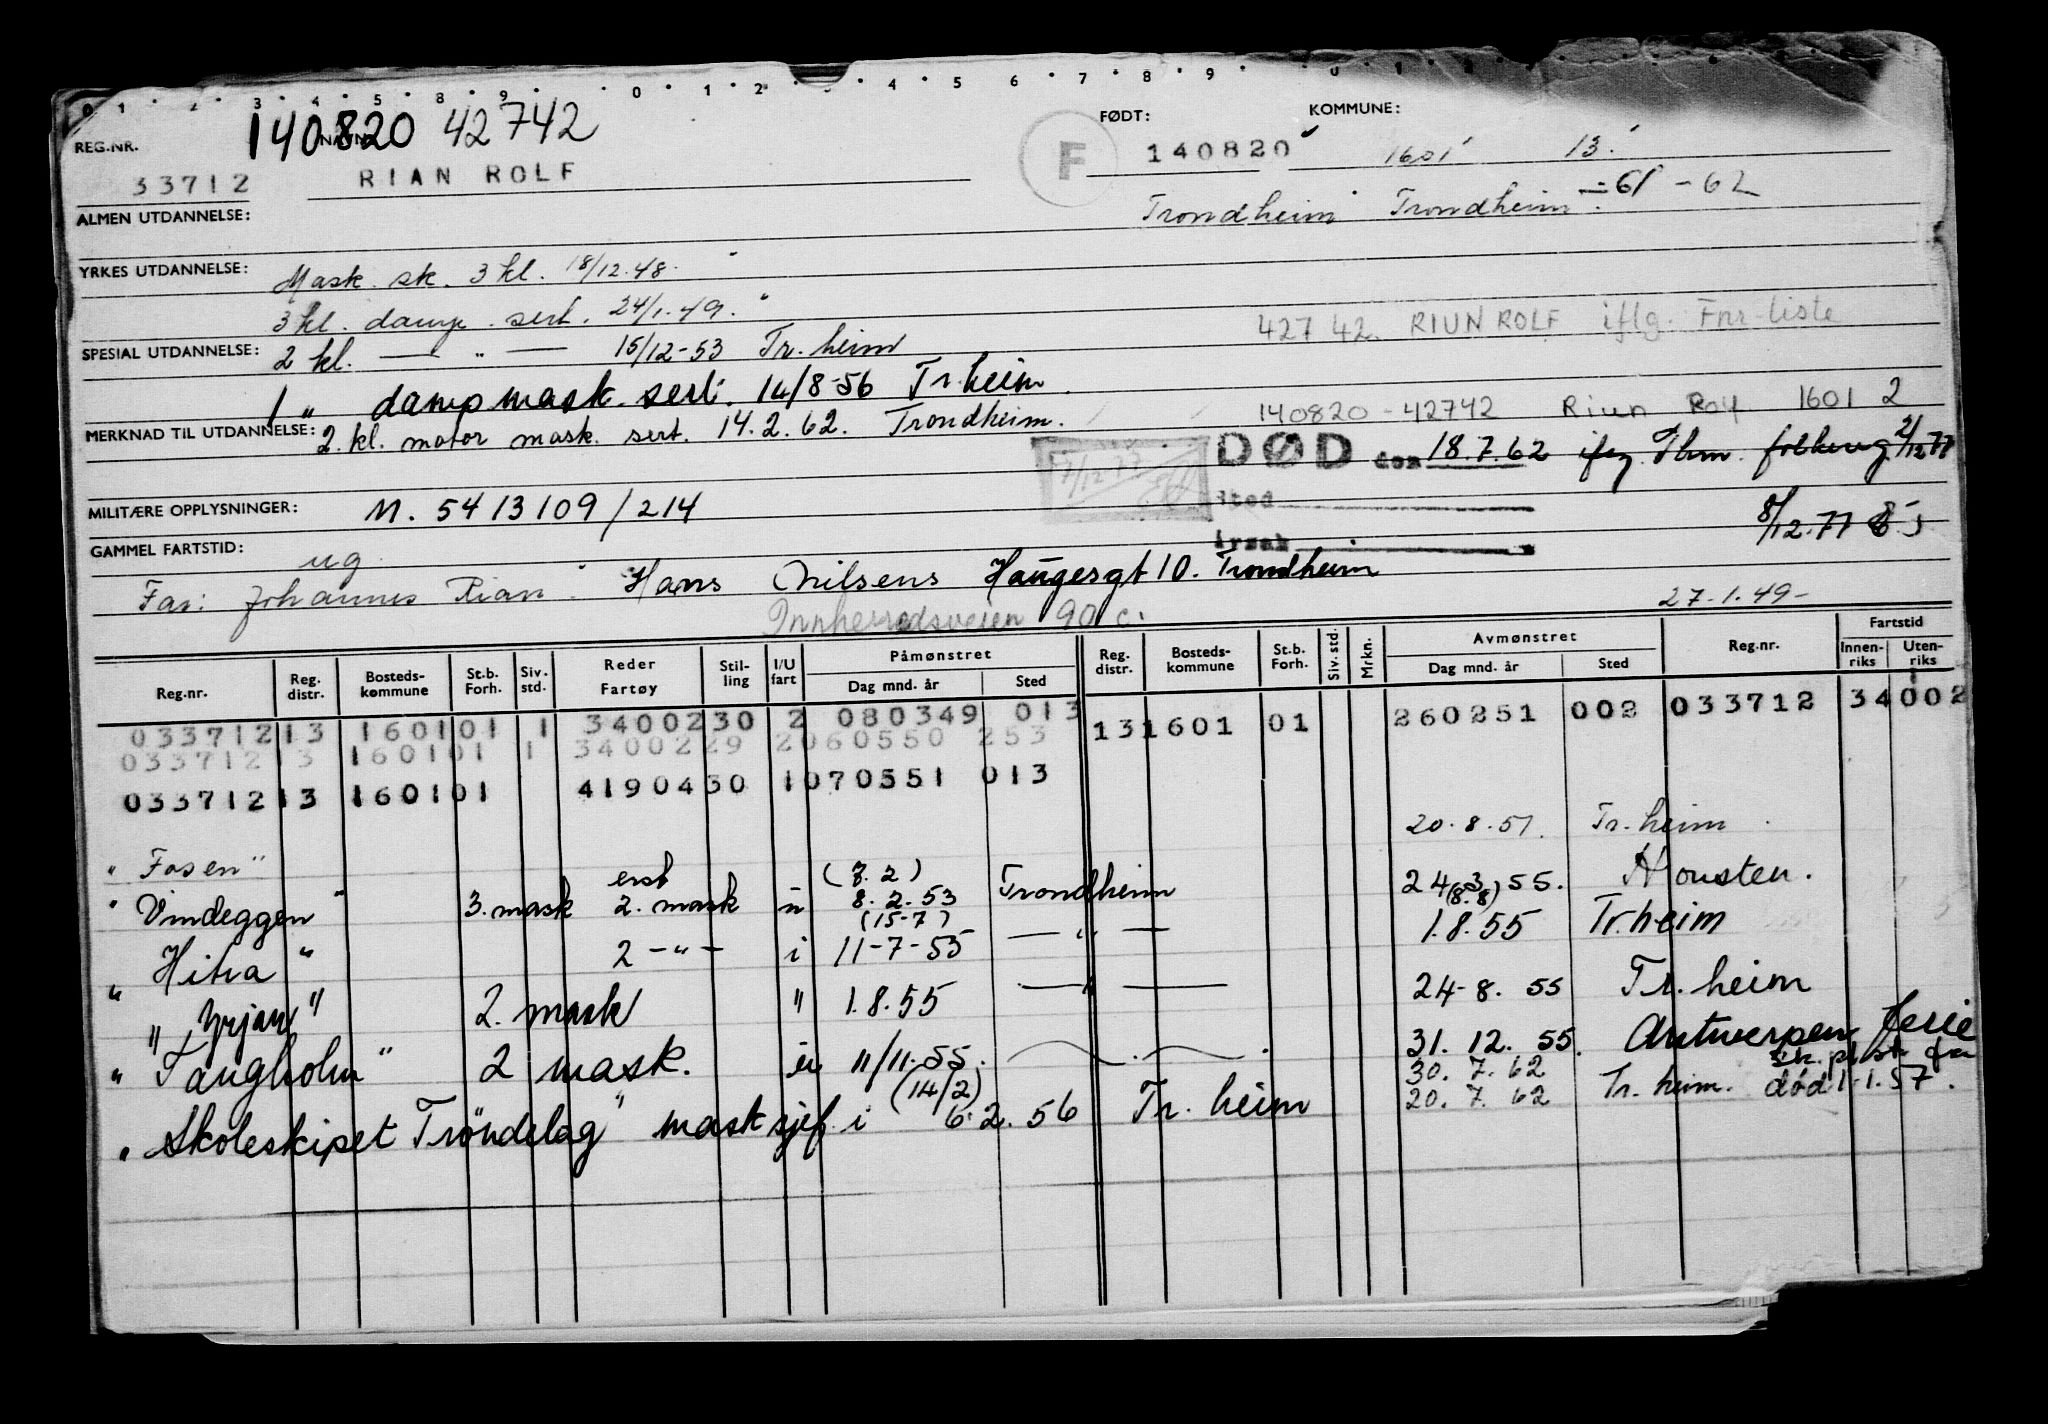 0 1 2 3 4 5 8 9 0 1 2 4 5 6 7 8 9 0 1
140820 42742
REG.NR. NAVN: F FØDT: KOMMUNE:
33712 RIAN ROLF 140820 1601 13
ALMEN UTDANNELSE: Trondheim Trondheim 61-62
YRKES UTDANNELSE: Mask. sk. 3 kl. 18/12-48.
3 kl. damp. sert. 24/1-49.
42742. RIUN ROLF iflg. Fnr-liste
SPESIAL UTDANNELSE: 2 kl. — " — 15/12-53 Tr.heim
1 " damp mask. sert. 14/8-56 Tr.heim.
140820-42742 Riun Rolf 1601 2
MERKNAD TIL UTDANNELSE: 2. kl. motor mask. sert. 14.2.62. Trondheim.
DØD den 18.7.62 2/12 77
sted
MILITÆRE OPPLYSNINGER: M. 5413109/214
8/12.77
årsak
GAMMEL FARTSTID: ug
Far: Johannes Rian. Hans Nilsens Haugesgt 10. Trondheim
Innherredsveien 90 c. 27-1.49-
Reg.nr. Reg. distr. Bosteds-kommune St.b. Forh. Siv. std. Reder Fartøy Stil-ling I/U fart Påmønstret Dag mnd. år Sted Reg. distr. Bosteds-kommune St.b. Forh. Siv. std. Mrkn. Avmønstret Dag mnd. år Sted Reg.nr. Fartstid Innen-riks Uten-riks
033712 13 1601 01 1 34002 30 2 080349 013 13 1601 01 260251 002 033712 34002
033712 13 1601 01 1 34002 29 2 060550 253
033712 13 1601 01 41904 30 1 070551 013
"Fosen" 20.8.51. Tr.heim
"Vindeggen" 3. mask erst 2. mask u (8.2) 8.2.53 Trondheim 24.3.55. Housten.
"Hitra" 2 — " — i (15-7) 11-7-55 — " — (8.8) 1.8.55 Tr.heim
"Yrjar" 2. mask " 1.8.55 — " — 24-8.55 Tr.heim
"Tangholm" 2 mask. u 11/11-55. 31.12.55. Antwerpen ferie
30.7.62
"Skoleskipet Trøndelag" masksjef i (14/2) 6.2.56 Tr.heim 20.7.62 Tr.heim. død 1-1.57.